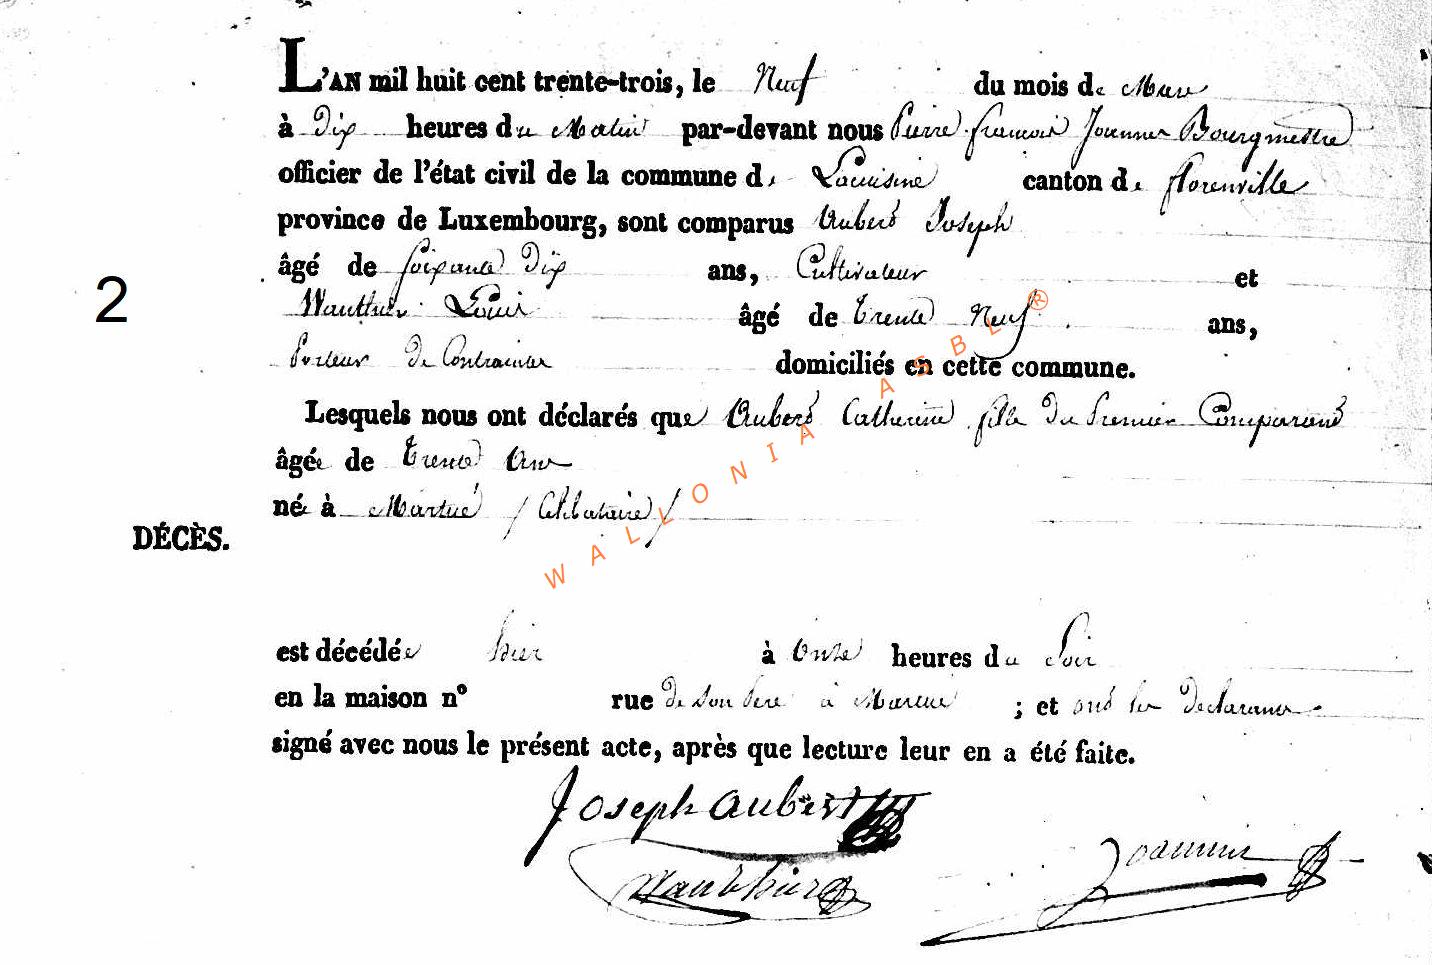 L'AN mil huit cent trente-trois, le Neuf du mois de Mars
à Dix heures du Matin par-devant nous Pierre françois Joannes Bourgmestre
officier de l'état civil de la commune de Lacuisine canton de florenville
province de Luxembourg, sont comparus Aubert Joseph
âgé de soixante Dix ans, Cultivateur et
2
Wauthier Louis âgé de trente Neuf ans,
Porteur de Contraintes domiciliés en cette commune.
Lesquels nous ont déclarés que Aubert Catherine fille du Premier Comparant
âgée de trente Ans
née à Martué / Célibataire /
DÉCÈS.
est décédée hier à Onze heures du Soir
en la maison nº rue de son Pere à Martué ; et ont les Declarants
signé avec nous le présent acte, après que lecture leur en a été faite.
Joseph aubert
Wauthier
WALLONIA ASBL ®